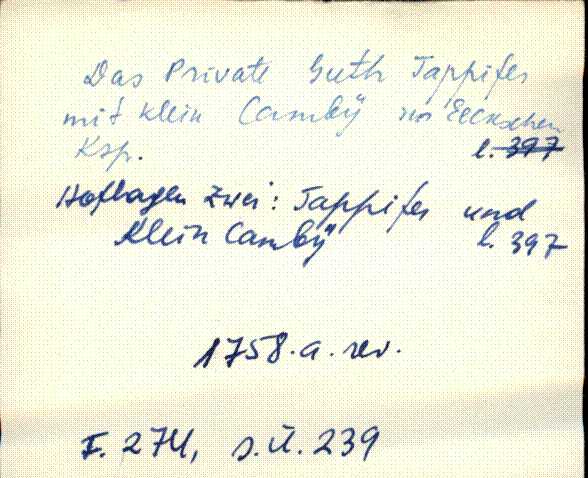 Das Private Guth Tappifer
mit Klein Cambÿ im Eeckschen
Ksp. l. 397
Hoflagen zwei: Tappifer und
Klein Cambÿ l. 397
1758.a. rev.
F. 274, s.ü. 239